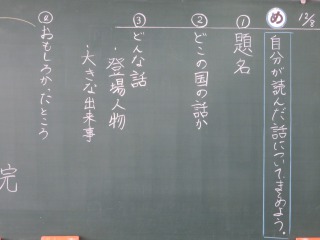 12/8
め
自分が読んだ話についてまとめよう。
① 題名
② どこの国の話か
③ どんな話
・登場人物
・大きな出来事
④ おもしろかったところ
完